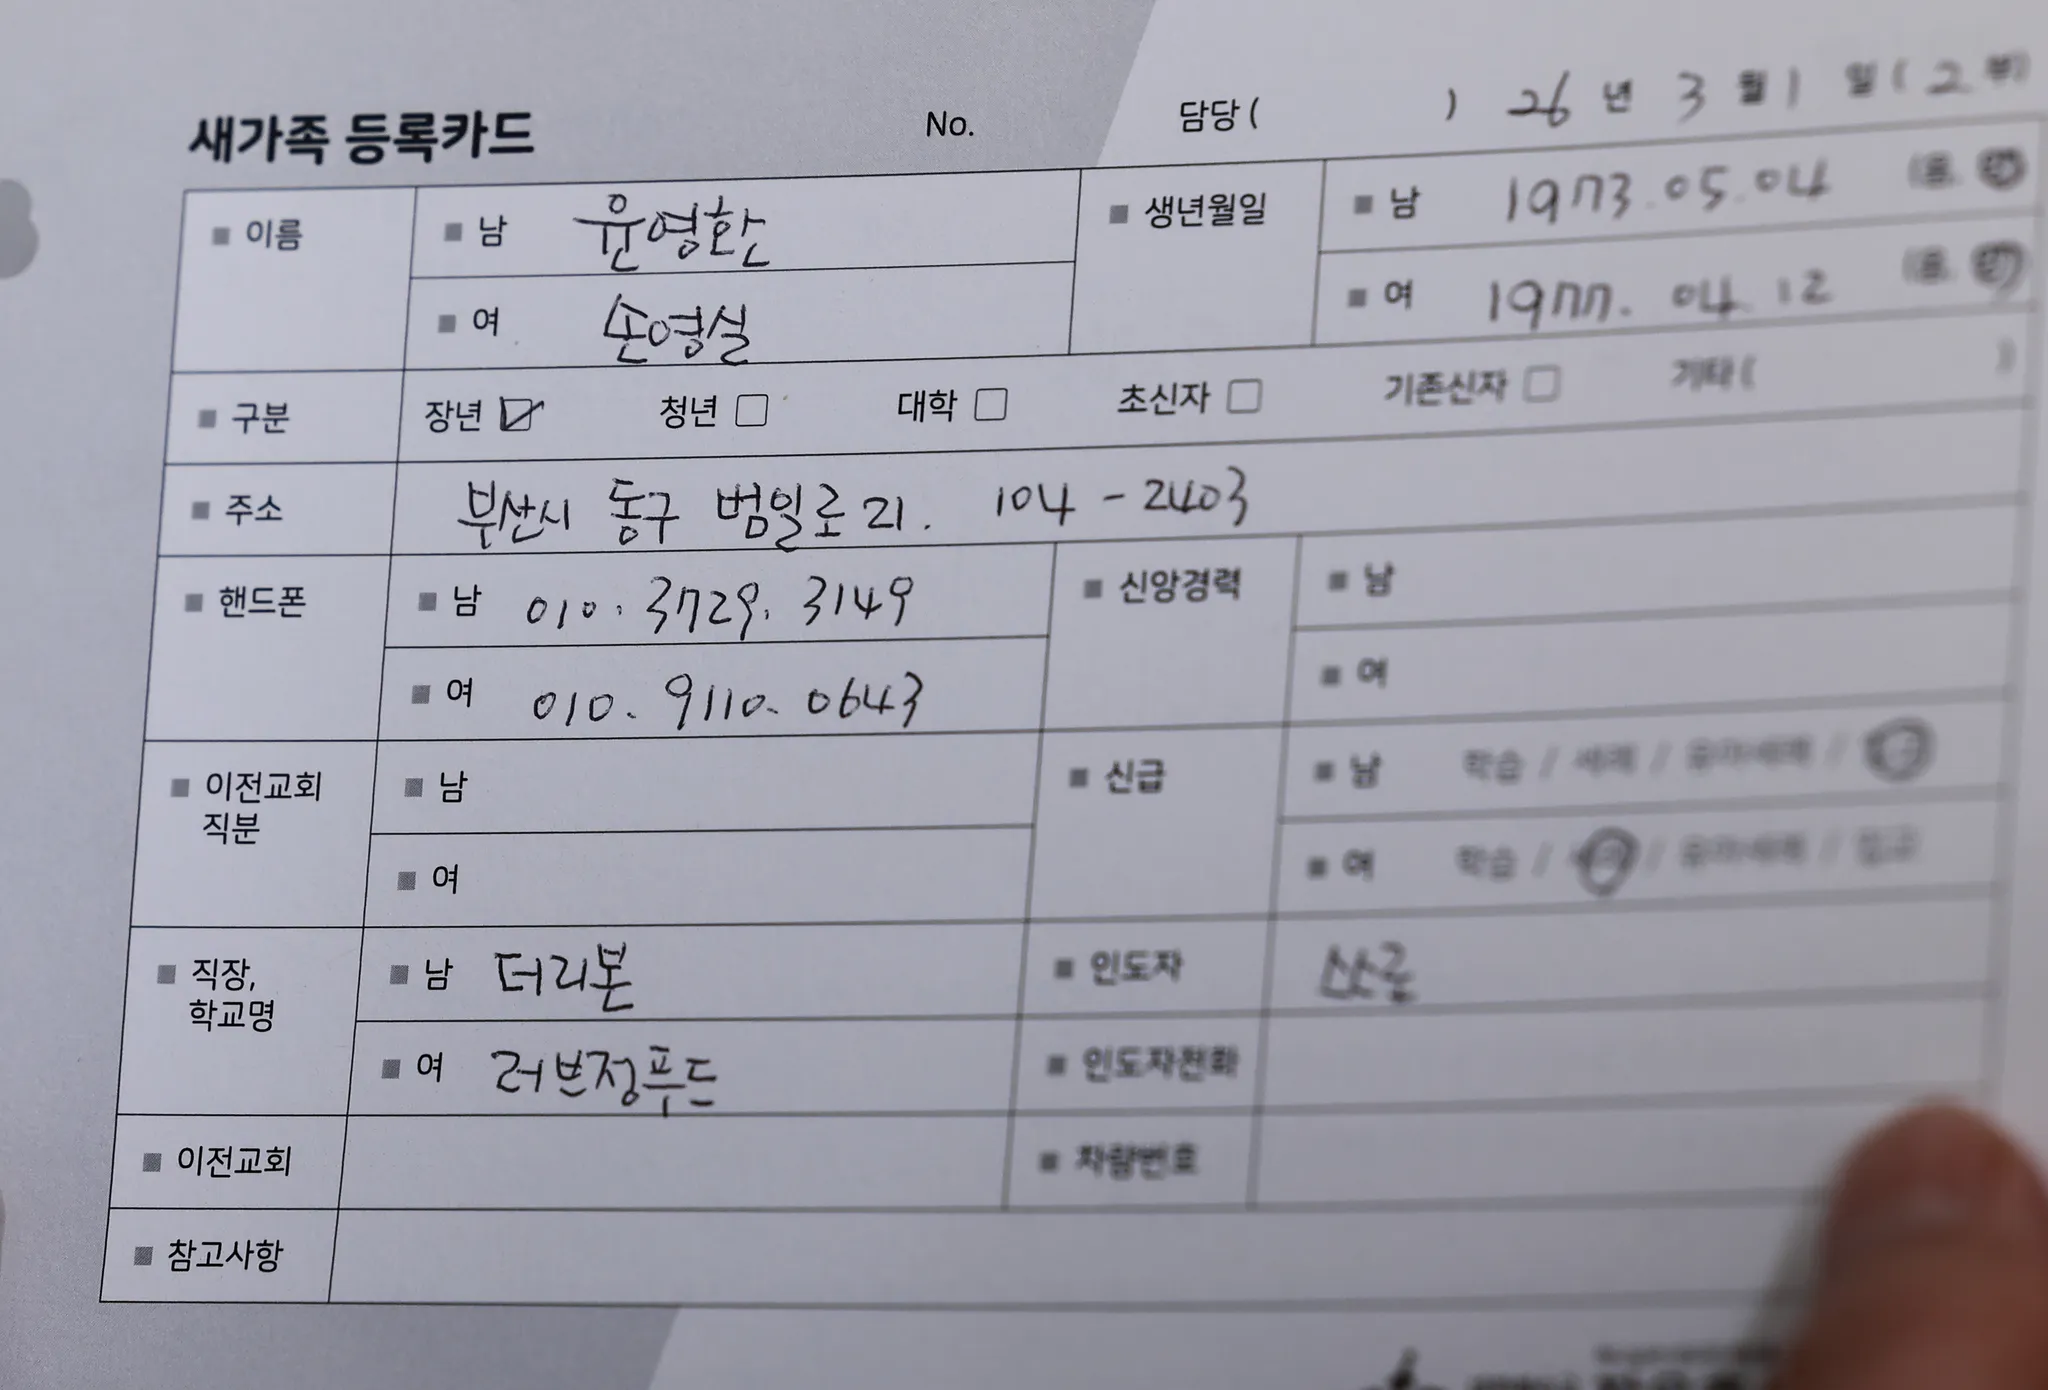 새가족 등록카드 No. 담당 ( ) 26 년 3 월 1 일 ( 2 부)
이름 남 윤영환 생년월일 남 1973.05.04 (음.
여 손영실 여 1977. 04. 12 (음.
구분 장년 청년 대학 초신자 기존신자 기타 ( )
주소 부산시 동구 범일로 21. 104 - 2403
핸드폰 남 010. 3729. 3149 신앙경력 남
여 010. 9110. 0643 여
이전교회 직분 남 신급 남 학습 / 세례 / 유아세례 /
여 여 학습 / / 유아세례 / 입교
직장, 학교명 남 더리본 인도자
여 러브정푸드 인도자전화
이전교회 차량번호
참고사항